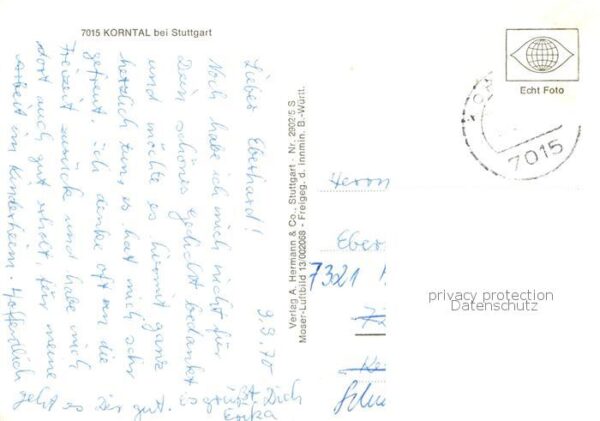 7015 KORNTAL bei Stuttgart
Echt Foto
7015
9.9.70
Lieber Eberhard!
Noch habe ich mich nicht für
Dein schönes Gedicht bedankt
und möchte es hiermit ganz
herzlich tun, es hat mich sehr
gefreut. Ich denke oft an die
Freizeit zurück und habe mich
dort auch gut erholt, für meine
Arbeit im Kinderheim. Hoffentlich
geht es Dir gut. Es grüßt Dich
Verlag A. Hermann & Co., Stuttgart · Nr. 2902/5 S.
Moser-Luftbild 13/002068 - Freigeg. d. Innmin. B.-Württ.
Herrn
Eber
7321
privacy protection
Datenschutz